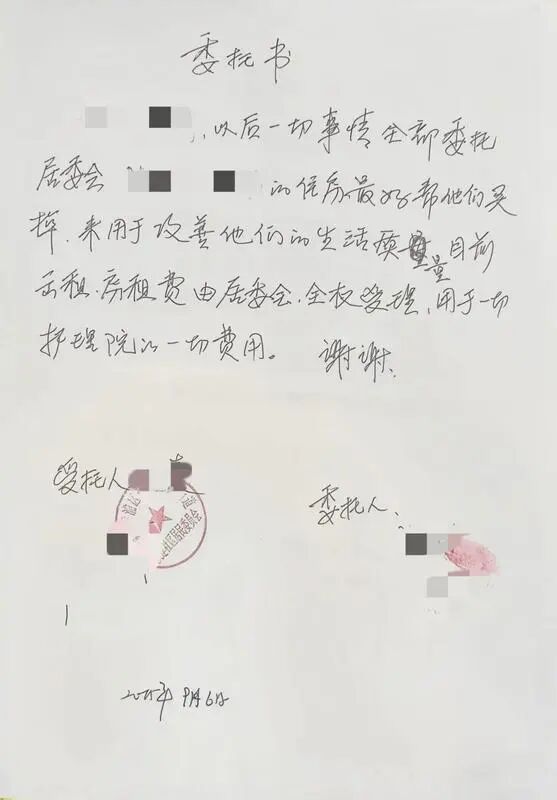 委托书
，以后一切事情全部委托
居委会 的住房最好帮他们买
掉.来用于改善他们的生活质量量目前
出租.房租费由居委会.全权受理,用于一切
护理院的一切费用。 谢谢.
受托人
居民委员会
委托人.
2025年9月6日